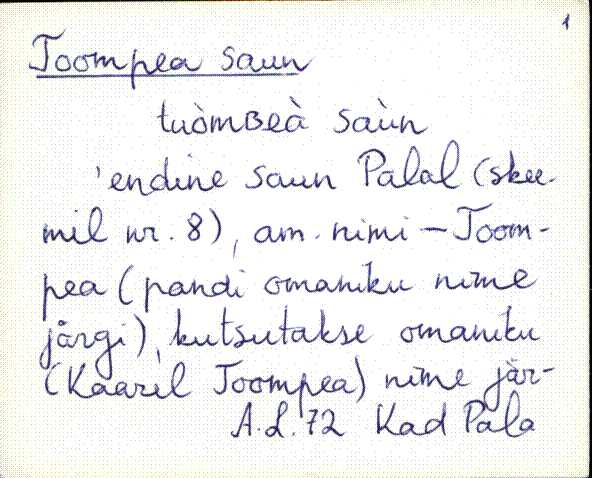 1
Toompea saun
tuòmʙeà saùn
'endine saun Palal (skee-
mil nr. 8), am. nimi – Toom-
pea (pandi omaniku nime
järgi), kutsutakse omaniku
(Kaarel Toompea) nime jär-
A.L. 72 Kad Pala